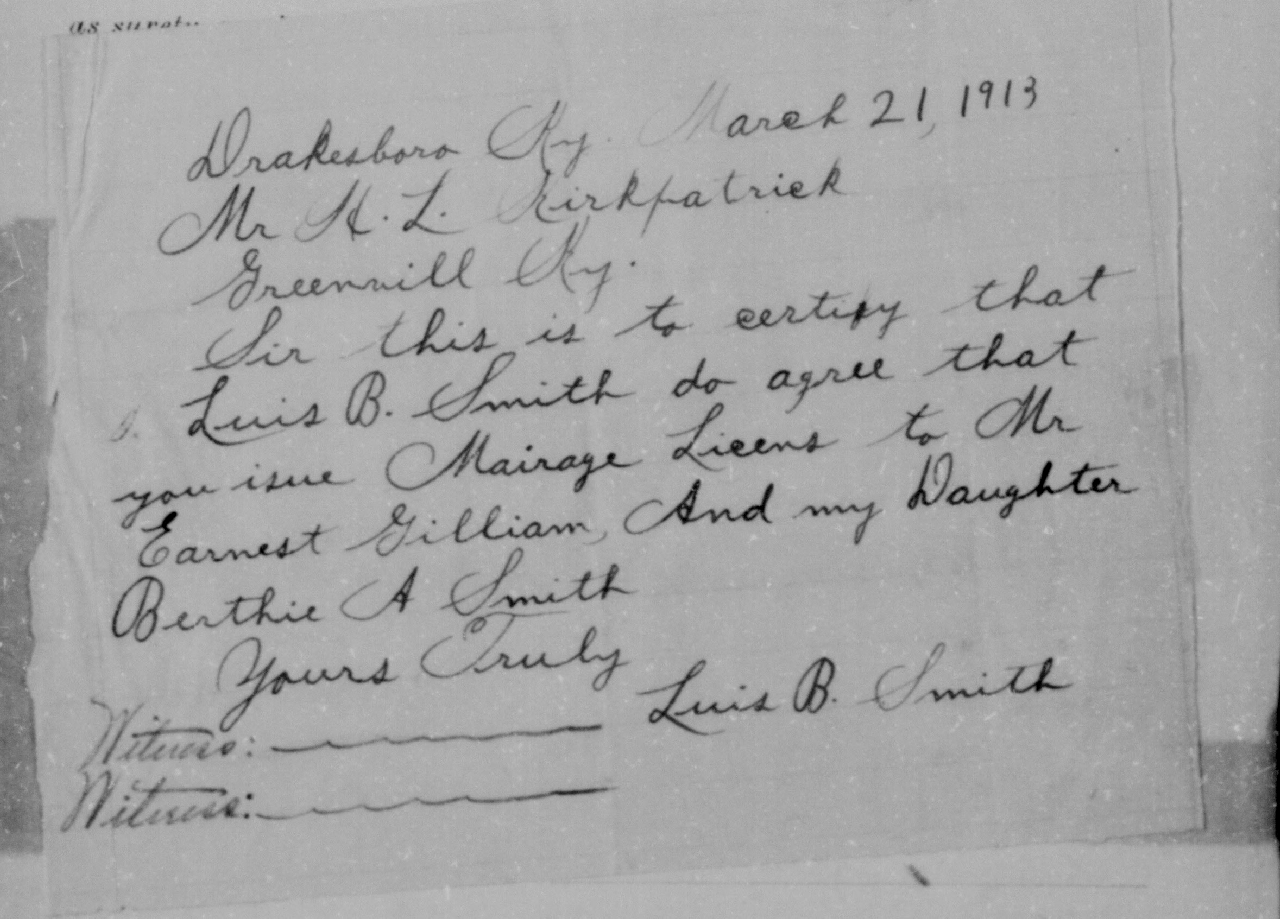 as surety
Drakesboro Ky. March 21, 1913
Mr H. L. Kirkpatrick
Greenvill Ky.
Sir this is to certify that
I. Luis B. Smith do agree that
you isue Mairage Licens to Mr
Earnest Gilliam, And my Daughter
Berthie A Smith
Yours Truly
Luis B. Smith
Witness:
Witness: